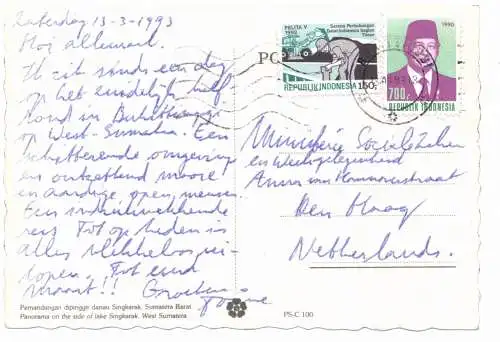 Zaterdag 13-3-1993
Hoj allemaal.
Ik zit sinds een dag
op het eindelijk half
rond in Bukittinggi
op West-Sumatra. Een
schitterende omgeving
en ontzettend mooie
en aardige open mensen
Een indrukwekkende
reis. Tot op heden is
alles vlekkeloos ver-
lopen. Tot eind
maart!! Groeten
Pemandangan dipinggir danau Singkarak, Sumatera Barat
Panorama on the side of lake Singkarak, West Sumatera
PS-C 100
PELITA V
1992
Sarana Perhubungan
Dalat Indonesia bagian
Timur
REPUBLIK INDONESIA 150
1990
700
REPUBLIK INDONESIA
Ministerie Sociale Zaken
en Werkgelegenheid
Anna van Hannoverstraat
Den Haag
Netherlands.